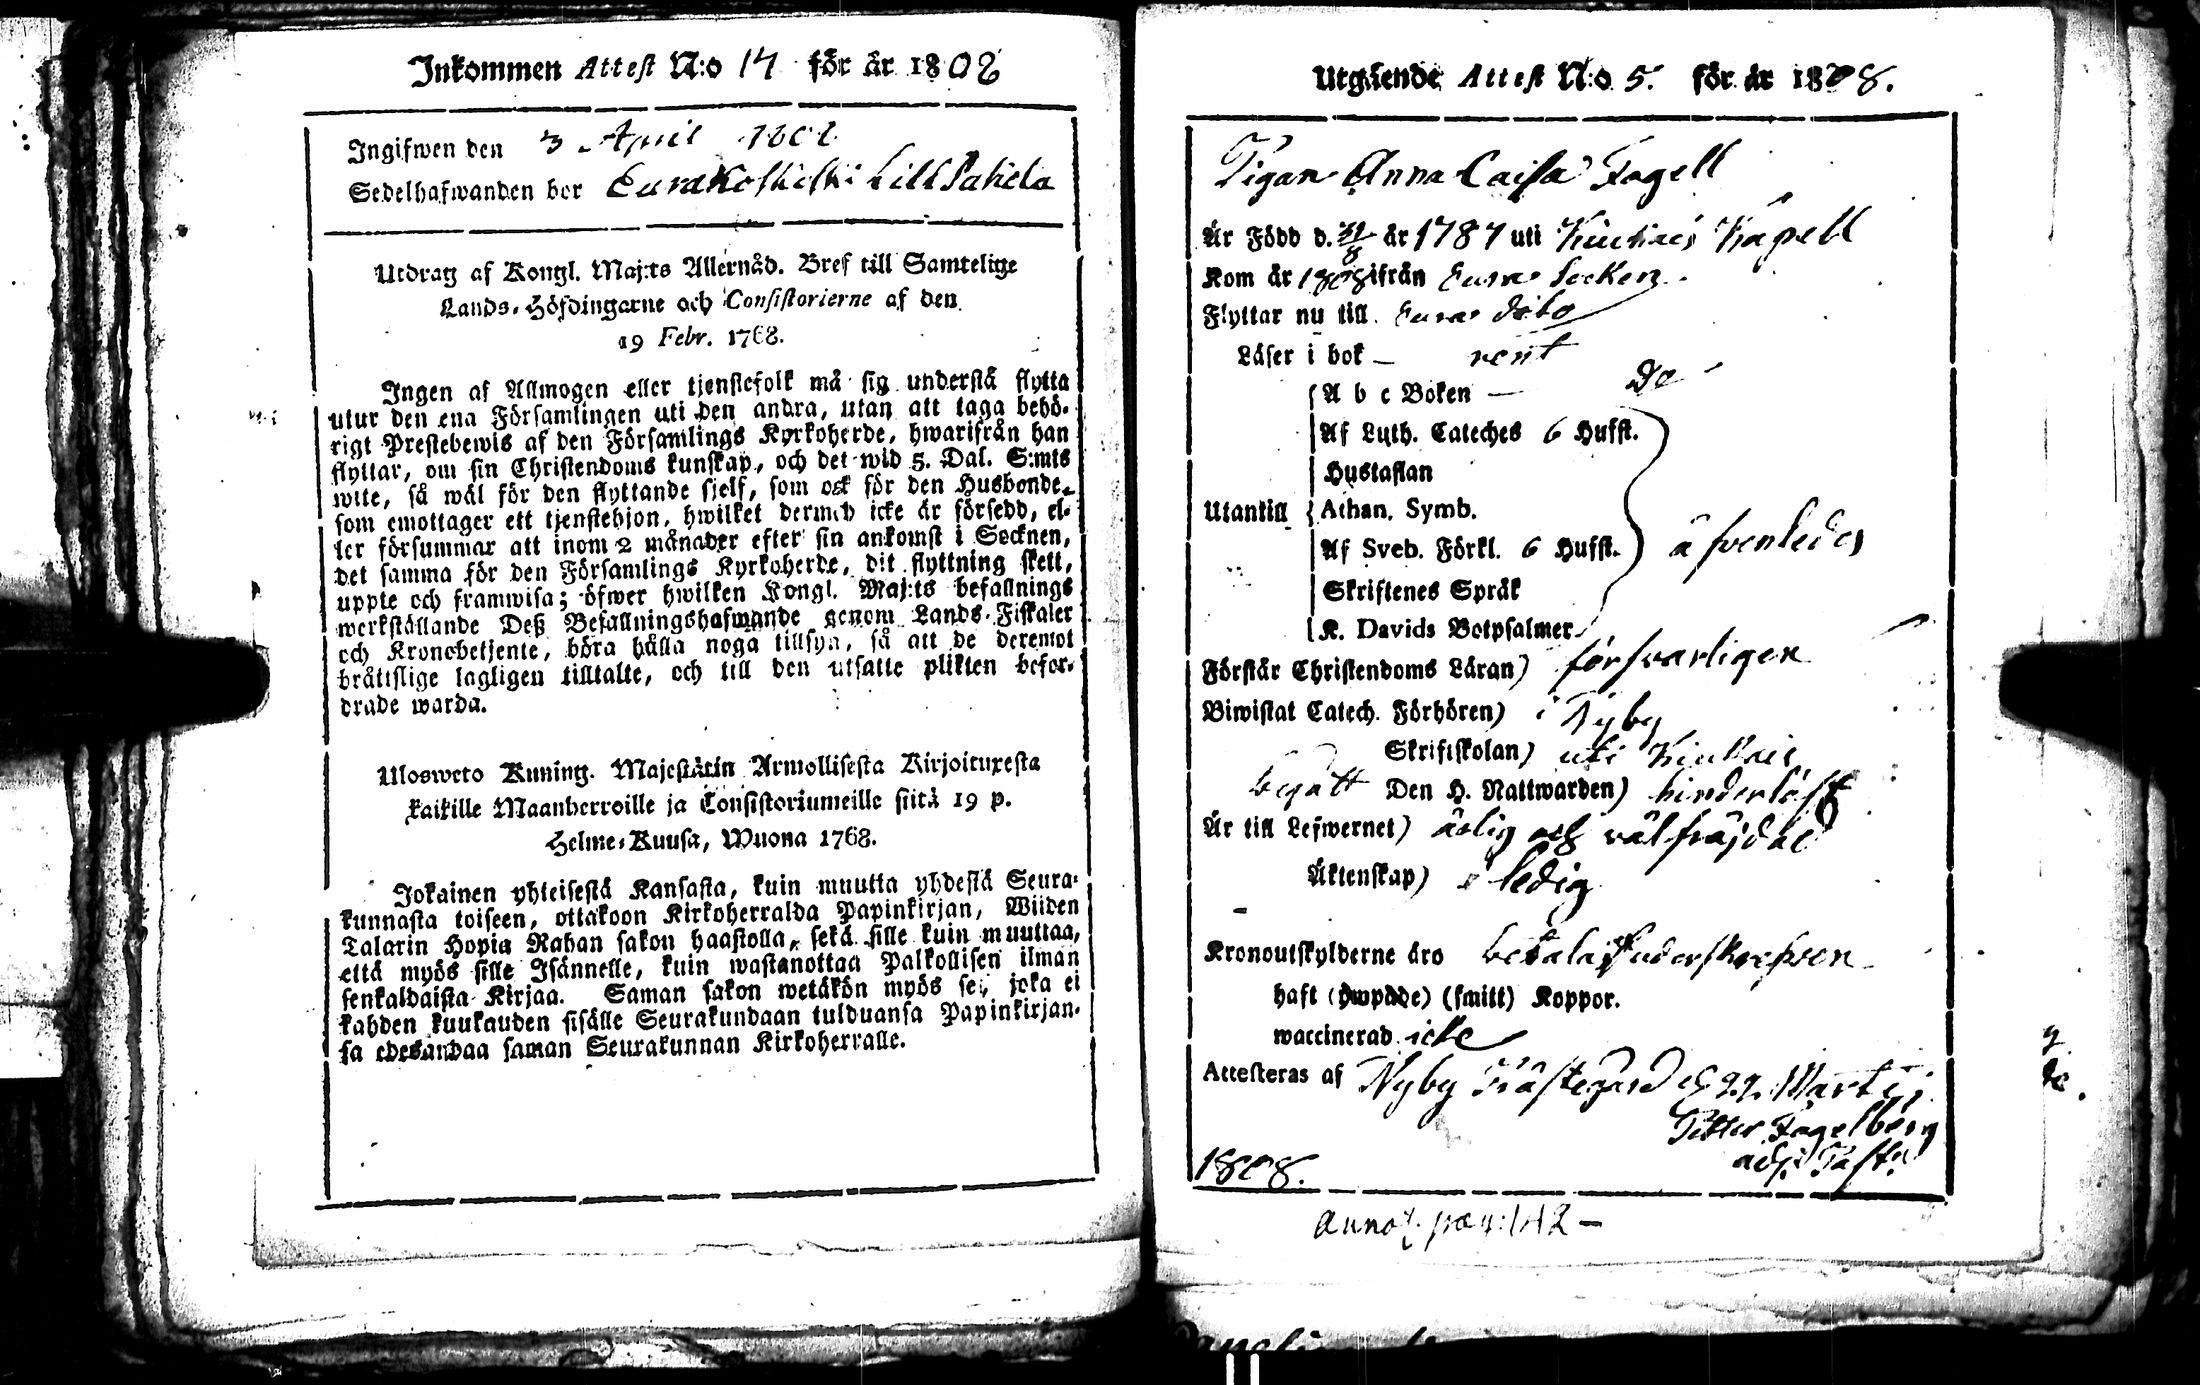 Inkommen Attest N:o 14 för år 1808
Ingifwen den 3 April 1808
Sedelhafwanden bor Eurakoskiski Lill Pahela
Utdrag af Kongl. Maj:ts Allernåd. Bref till Samtelige
Lands-Höfdingarne och Consistorierne af den
19 Febr. 1768.
Ingen af Allmogen eller tjenstefolk må sig understå flytta
utur den ena Församlingen uti den andra, utan att taga behö-
rigt Prestebewis af den Församlings Kyrkoherde, hwarifrån han
flyttar, om sin Christendoms kunskap, och det wid 5. Dal. S:mts
wite, så wäl för den flyttande sjelf, som ock för den Husbonde,
som emottager ett tjenstehjon, hwilket dermed icke är försedd, el-
ler försummar att inom 2 månader efter sin ankomst i Socknen,
det samma för den Församlings Kyrkoherde, dit flyttning skett,
uppte och framwisa; öfwer hwilken Kongl. Maj:ts befallnings
werkställande Deß Befallningshafwande genom Lands-Fiskaler
och Kronobetjente, böra hålla noga tillsyn, så att de deremot
bråttslige lagligen tilltalte, och till den utsatte plikten befor-
drade warda.
Ulosweto Kuning. Majestätin Armollisesta Kirjoituxesta
kaikille Maanherroille ja Consistoriumeille siitä 19 p.
Helme-Kuusa, Wuona 1768.
Jokainen yhteisestä Kansasta, kuin muutta yhdestä Seura-
kunnasta toiseen, ottakoon Kirkoherralda Papinkirjan, Wiiden
Talarin Hopia Rahan sakon haastolla, sekä sille kuin muuttaa,
että myös sille Isännelle, kuin wastanottaa Palkollisen ilman
senkaldaista Kirjaa. Saman sakon wetäkön myös se, joka ei
kahden kuukauden sisälle Seurakundaan tulduansa Papinkirjan-
sa edesandaa saman Seurakunnan Kirkoherralle.
Utgående Attest N:o 5. för år 1808.
Pigan Anna Caisa Fagell
Är Född d. 31/8 år 1787 uti Kiukais Kapell
Kom år 1808 ifrån Eura Socken.
Flyttar nu till Eura dito
Läser i bok — rent
A b c Boken — Do
Af Luth. Cateches 6 Hufst.
Hustaflan
Utantill Athan. Symb.
Af Sveb. Förkl. 6 Hufst. äfvenledes
Skriftenes Språk
K. Davids Botpsalmer
Förstår Christendoms Läran) försvarligen
Biwistat Catech. Förhören) i Nyby
Skriftskolan) uti Kiukais
begått Den H. Nattwarden) hinderlöst
Är till Lefwernet) ärlig och välfräjdad
Äktenskap) ledig
Kronoutskylderne äro betalas
haft (ympade) (smitt) Koppor.
waccinerad icke
Attesteras af Nyby Prästegård d. 27 Martij
Petter Fagelberg
adj. Past:
1808.
annot. pag: 142 —